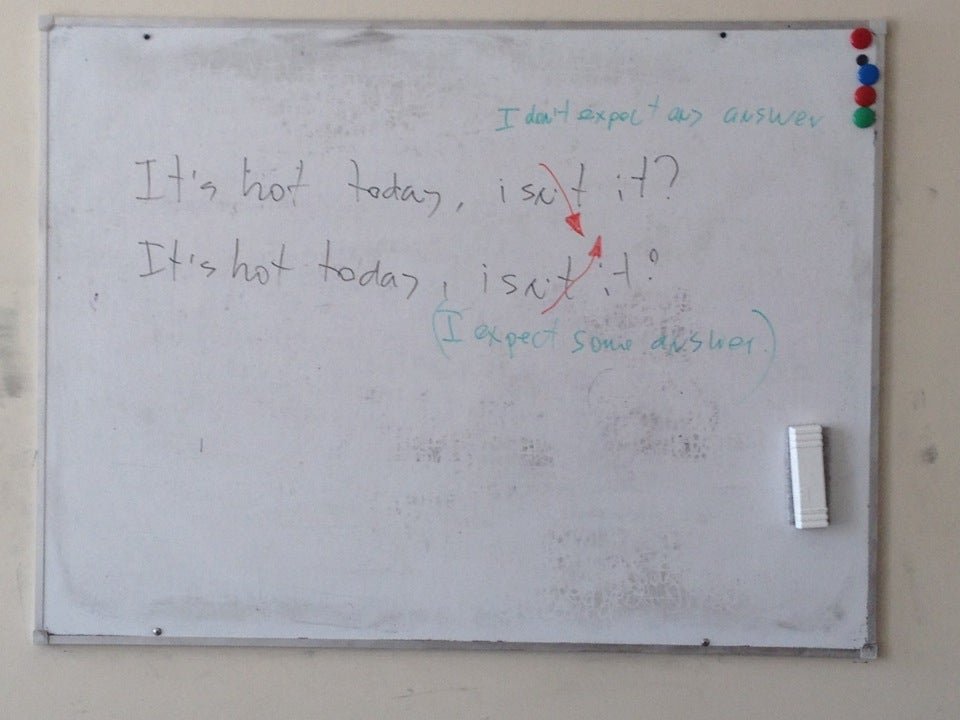 I don't expect any answer
It's hot today, isn't it?
It's hot today, isn't it?
(I expect some answer)